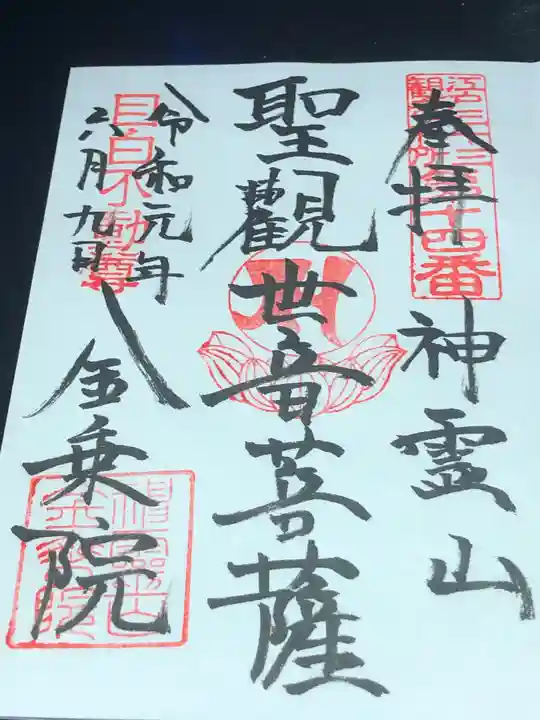 江戸三十三
観音札所第十四番
奉拝
神霊山
聖觀世音菩薩
目白不動尊
令和元年
六月九日
金乗院
神霊山
金乗院